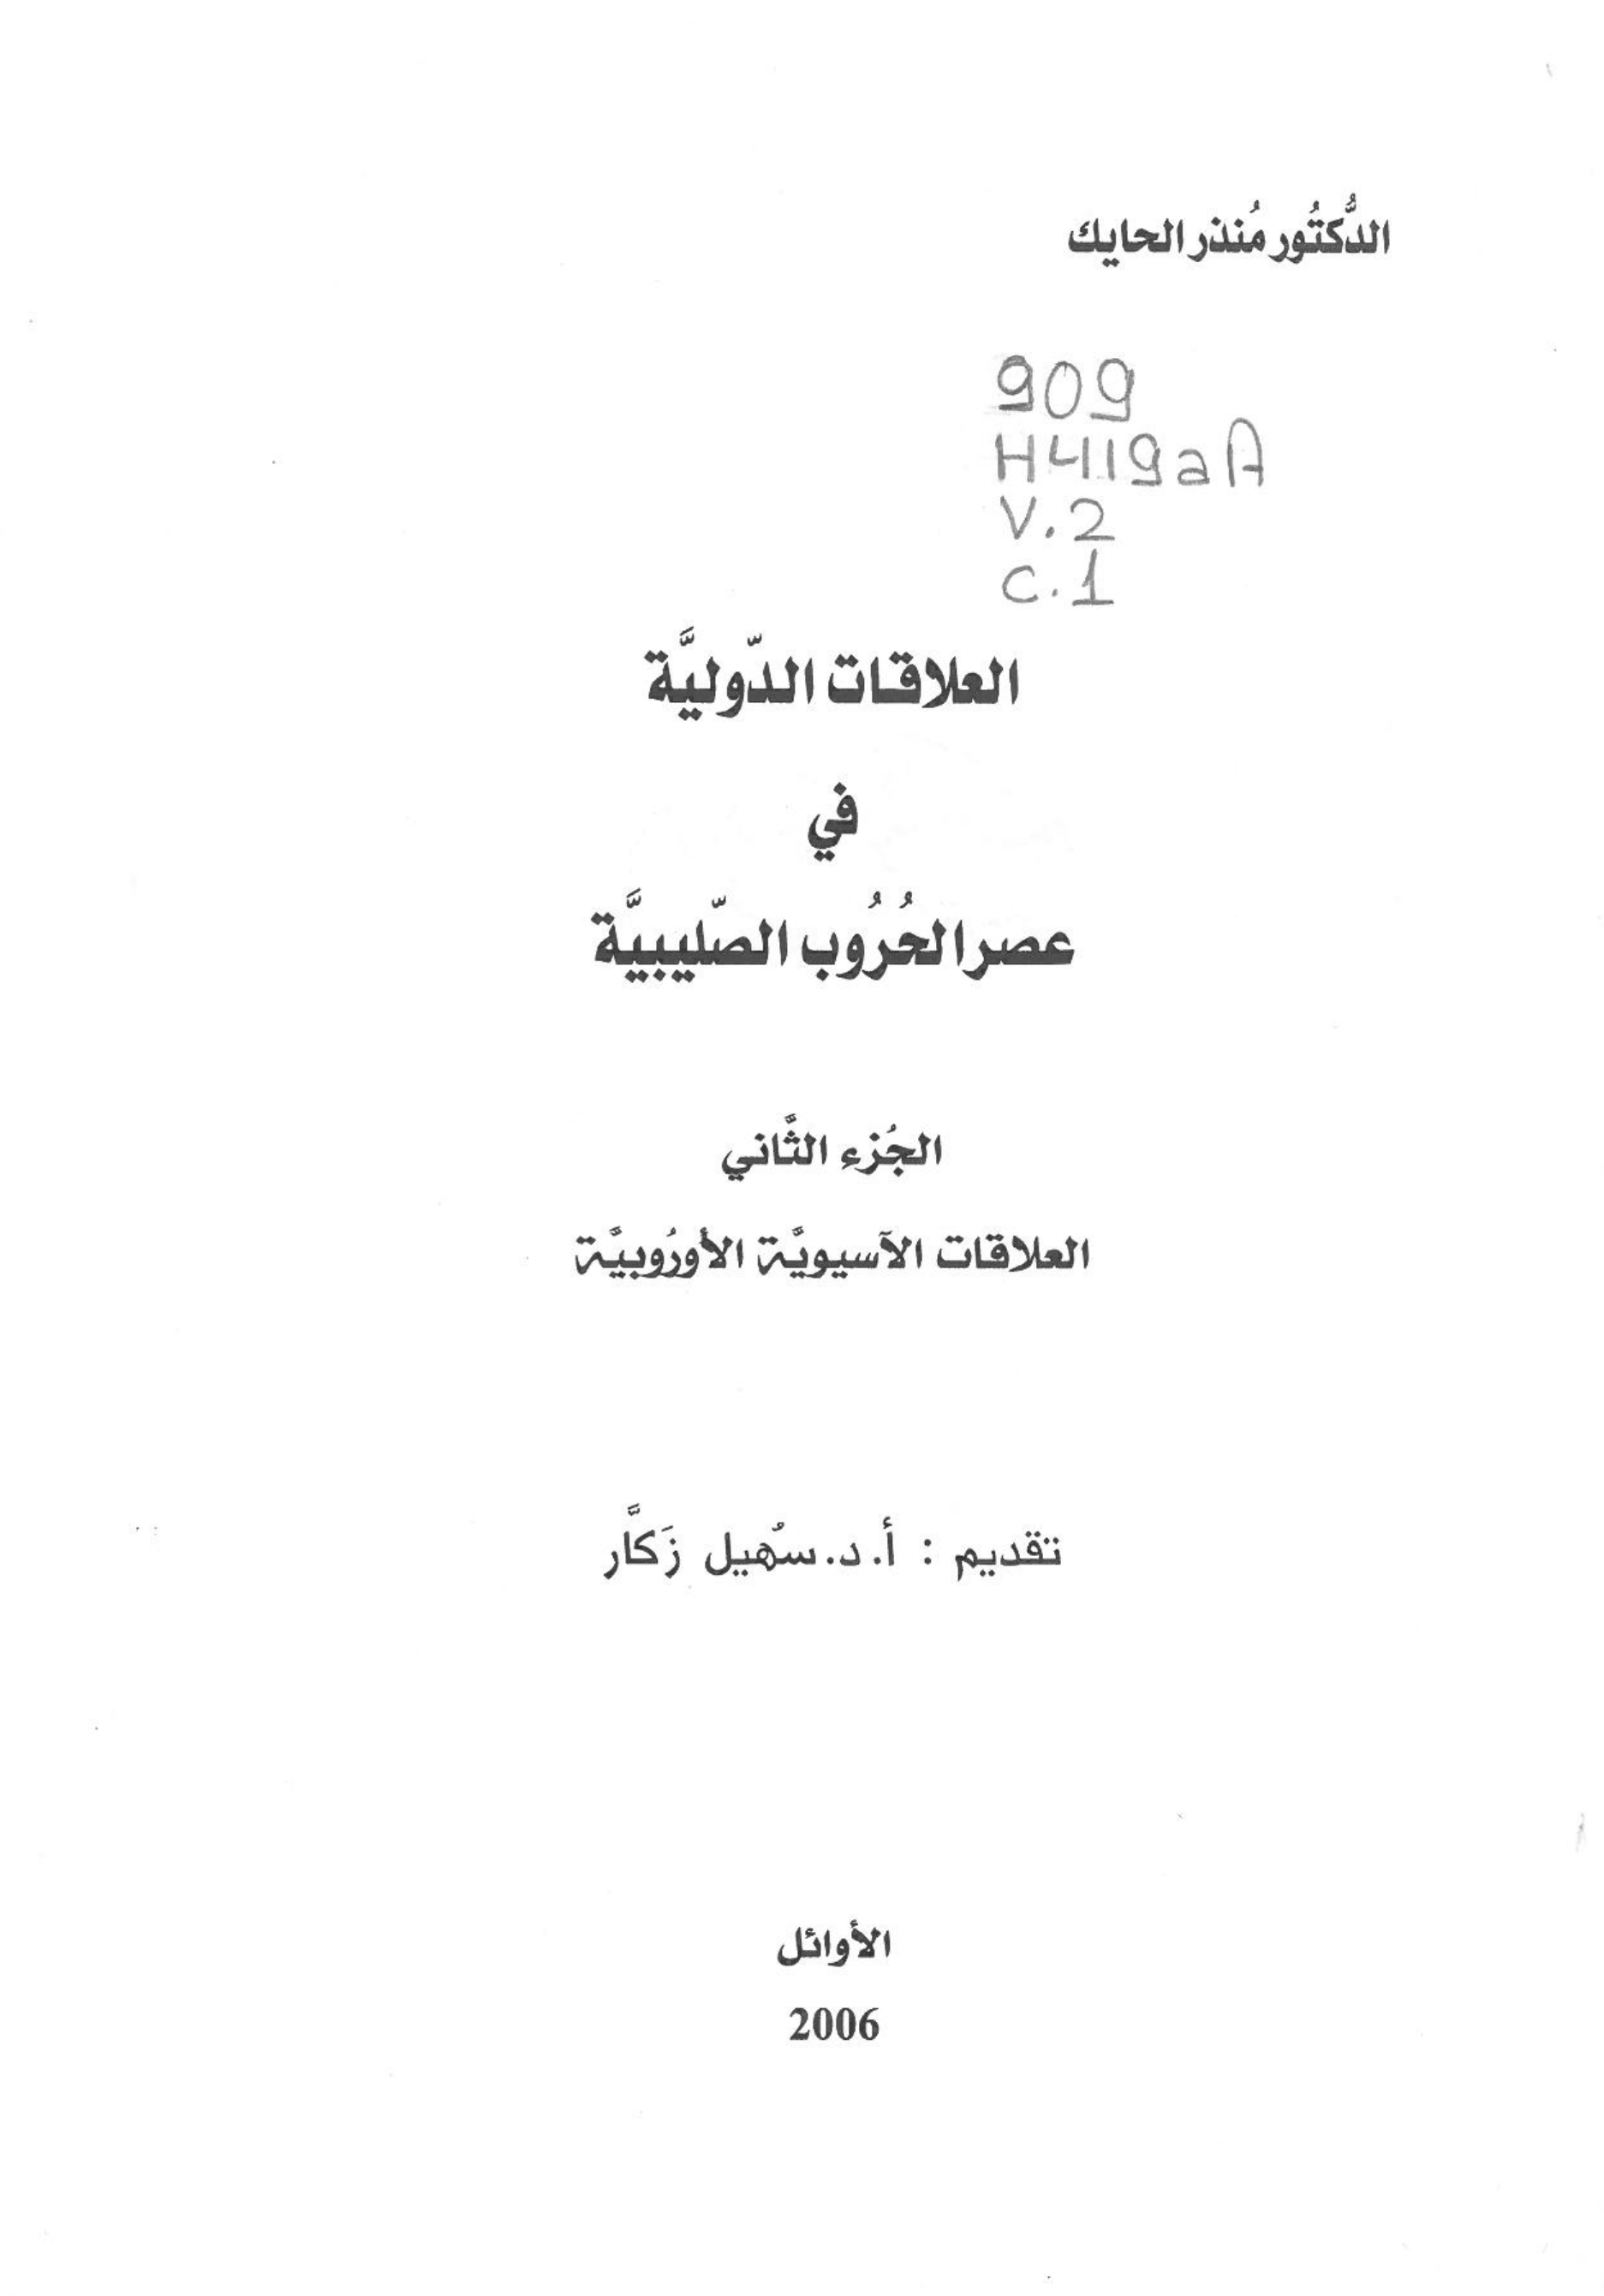 الدُّكتُور مُنذر الحايك
909
H419aA
V.2
C.1
العلاقات الدّوليَّة
في
عصر الحُرُوب الصّليبيَّة
الجُزء الثَّاني
العلاقات الآسيويَّة الأورُوبيَّة
تقديم : أ.د.سُهيل زَكَّار
الأوائل
2006